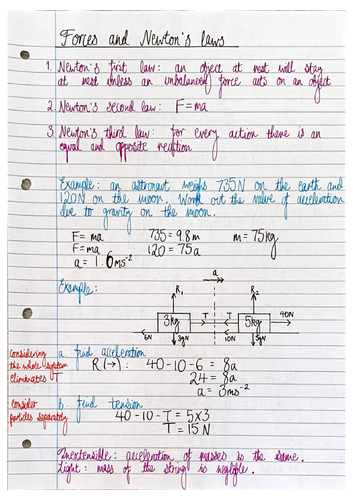 Forces and Newton's laws
1. Newton's first law: an object at rest will stay
at rest unless an unbalanced force acts on an object
2. Newton's second law: F=ma
3. Newton's third law: for every action there is an
equal and opposite reaction
Example: an astronaut weighs 735N on the earth and
120N on the moon. Work out the value of acceleration
due to gravity on the moon.
F= ma 735 = 9.8m m = 75kg
F= ma 120 = 75a
a = 1.6ms⁻²
Example:
a
R₁ R₂
3kg T T 5kg 40N
6N 3gN 10N 5gN
considering
the whole system
eliminates T
a. find acceleration
R(→): 40-10-6 = 8a
24 = 8a
a = 3ms⁻²
consider
particles separately
b. find tension
40-10-T = 5×3
T = 15N
Inextensible: acceleration of masses is the same.
Light: mass of the string is negligible.